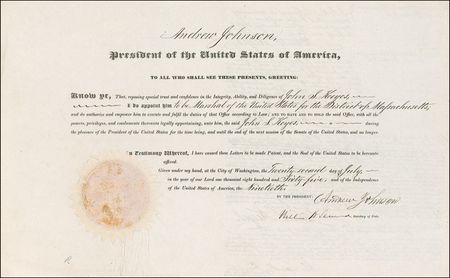 Andrew Johnson,
President of the United States of America,
TO ALL WHO SHALL SEE THESE PRESENTS, GREETING:
Know ye, That, reposing special trust and confidence in the Integrity, Ability, and Diligence of John S. Keyes,
I do appoint him to be Marshal of the United States for the District of Massachusetts
and do authorize and empower him to execute and fulfil the duties of that Office according to Law; AND TO HAVE AND TO HOLD the said Office, with all the
powers, privileges, and emoluments thereunto legally appertaining, unto him, the said John S. Keyes
during the pleasure of the President of the United States for the time being, and until the end of the next session of the Senate of the United States, and no longer.
In Testimony Whereof, I have caused these Letters to be made Patent, and the Seal of the United States to be hereunto
affixed.
Given under my hand, at the City of Washington, the Twenty second day of July
in the year of our Lord one thousand eight hundred and Sixty five, and of the Independence
of the United States of America, the Ninetieth.
BY THE PRESIDENT: Andrew Johnson
Secretary of State.